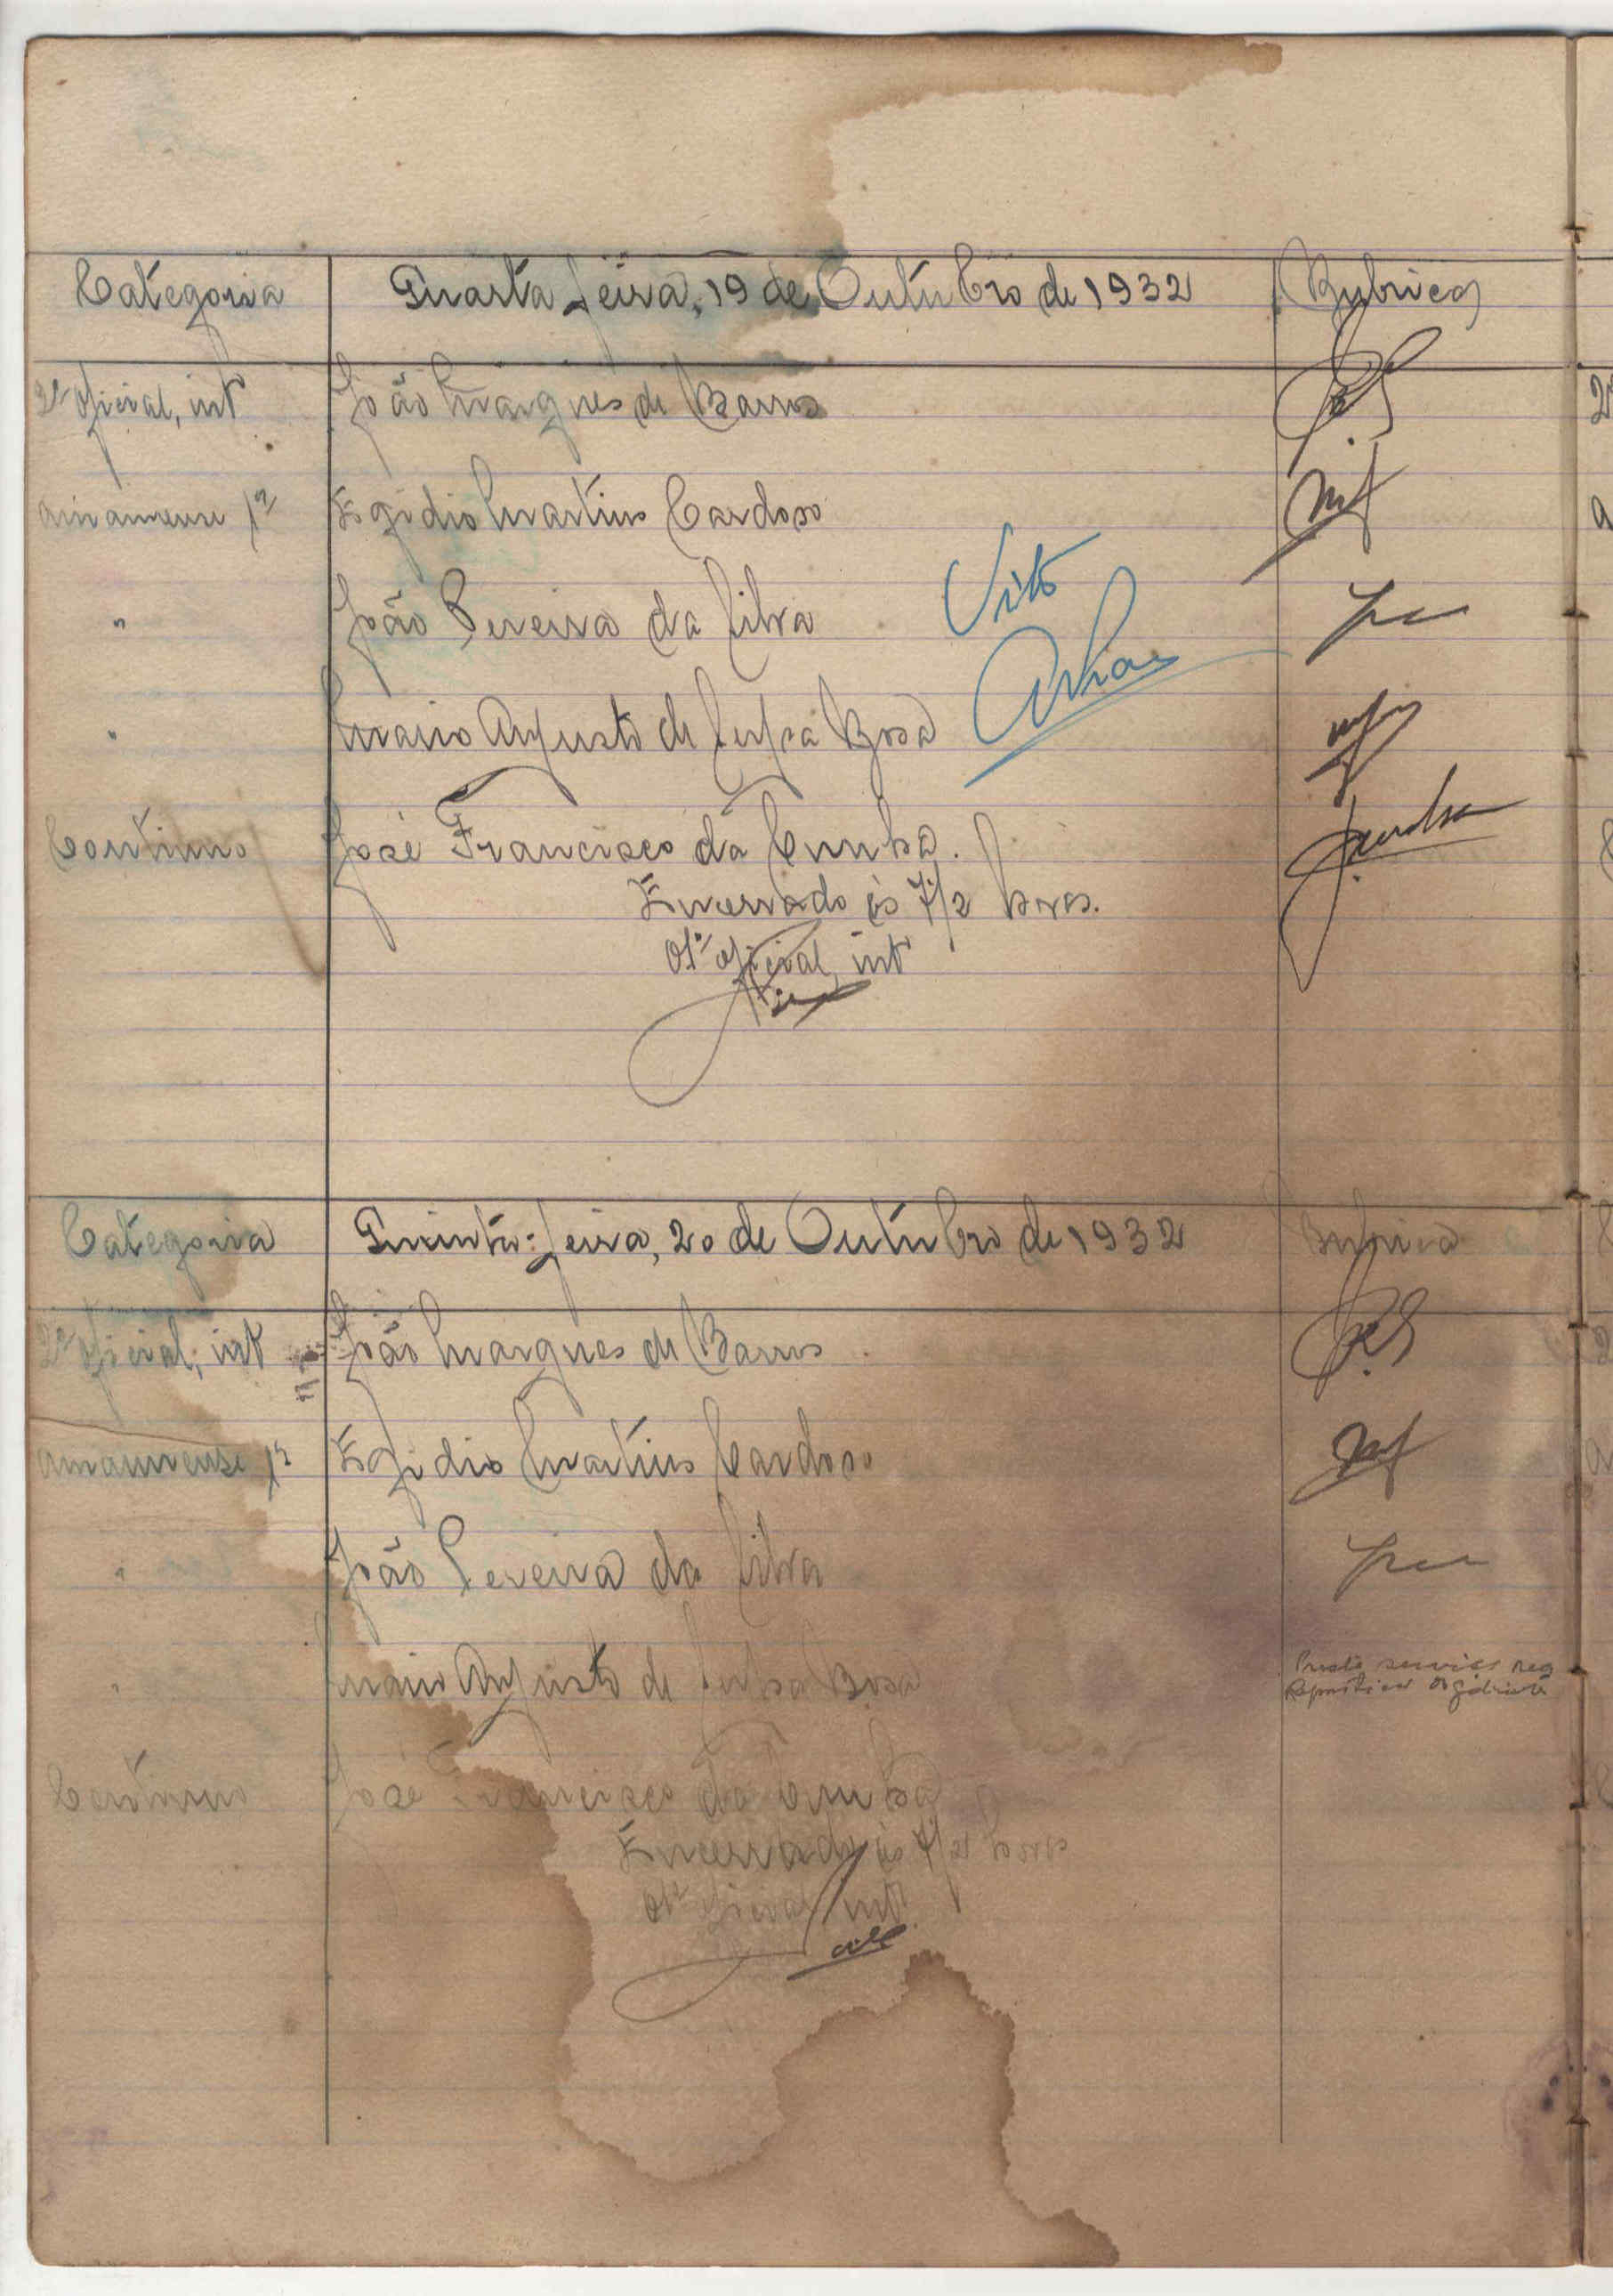 Categoria Quarta feira, 19 de Outubro de 1932 Rubrica
2º oficial, int João Marques de Barros
amanuense Egidio Martins Cardoso
" João Pereira da Silva
Visto
" Mário Augusto de Rosa
Contínuo José Francisco da Cunha.
Encerrado às 7 1/2 horas.
oficial, int
Categoria Quinta-feira, 20 de Outubro de 1932 Rubrica
2º oficial, int João Marques de Barros
amanuense Egidio Martins Cardoso
" João Pereira da Silva
" Mário Augusto de Rosa Presta serviço
Contínuo José Francisco da Cunha
Encerrado às 7 1/2 horas
oficial int